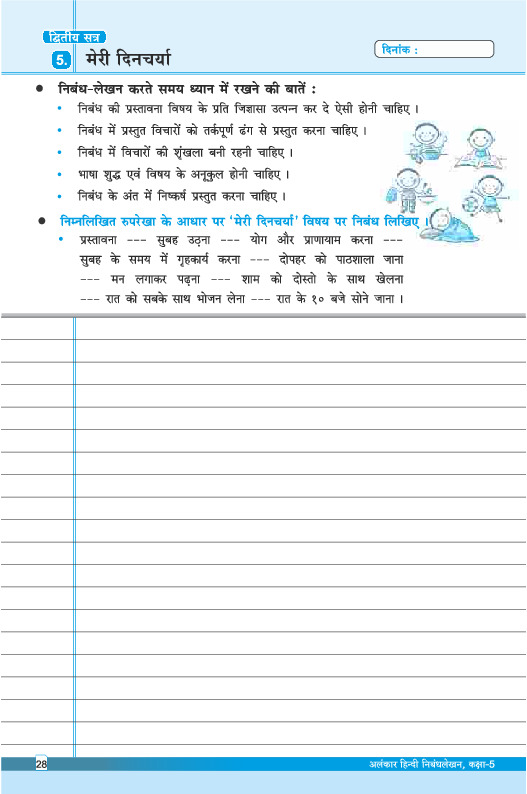 द्वितीय सत्र
5. मेरी दिनचर्या
दिनांक :
● निबंध-लेखन करते समय ध्यान में रखने की बातें :
• निबंध की प्रस्तावना विषय के प्रति जिज्ञासा उत्पन्न कर दे ऐसी होनी चाहिए ।
• निबंध में प्रस्तुत विचारों को तर्कपूर्ण ढंग से प्रस्तुत करना चाहिए ।
• निबंध में विचारों की शृंखला बनी रहनी चाहिए ।
• भाषा शुद्ध एवं विषय के अनूकुल होनी चाहिए ।
• निबंध के अंत में निष्कर्ष प्रस्तुत करना चाहिए ।
● निम्नलिखित रुपरेखा के आधार पर ‘मेरी दिनचर्या’ विषय पर निबंध लिखिए ।
• प्रस्तावना --- सुबह उठ़ना --- योग और प्राणायाम करना ---
सुबह के समय में गृहकार्य करना --- दोपहर को पाठशाला जाना
--- मन लगाकर पढ़ना --- शाम को दोस्तो के साथ खेलना
--- रात को सबके साथ भोजन लेना --- रात के १० बजे सोने जाना ।
28
अलंकार हिन्दी निबंधलेखन, कक्षा-5